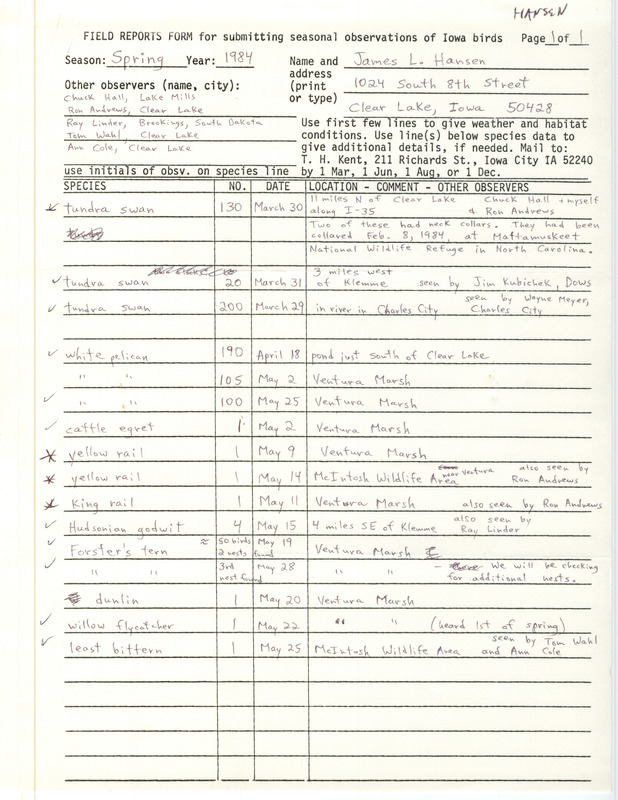 HANSEN
FIELD REPORTS FORM for submitting seasonal observations of Iowa birds Page 1 of 1
Season: Spring Year: 1984
Name and address (print or type)
James L. Hansen
1024 South 8th Street
Clear Lake, Iowa 50428
Other observers (name, city):
Chuck Hall, Lake Mills
Ron Andrews, Clear Lake
Ray Linder, Brookings, South Dakota
Tom Wahl, Clear Lake
Ann Cole, Clear Lake
use initials of obsv. on species line
Use first few lines to give weather and habitat
conditions. Use line(s) below species data to
give additional details, if needed. Mail to:
T. H. Kent, 211 Richards St., Iowa City IA 52240
by 1 Mar, 1 Jun, 1 Aug, or 1 Dec.
SPECIES NO. DATE LOCATION - COMMENT - OTHER OBSERVERS
tundra swan 130 March 30 11 miles N of Clear Lake along I-35 Chuck Hall + myself & Ron Andrews
Two of these had neck collars. They had been
collared Feb. 8, 1984, at Mattamuskeet
National Wildlife Refuge in North Carolina.
tundra swan 20 March 31 3 miles west of Klemme seen by Jim Kubichek, Dows
tundra swan 200 March 29 in river in Charles City seen by Wayne Meyer, Charles City
white pelican 190 April 18 pond just south of Clear Lake
" " 105 May 2 Ventura Marsh
" " 100 May 25 Ventura Marsh
cattle egret 1 May 2 Ventura Marsh
yellow rail 1 May 9 Ventura Marsh
yellow rail 1 May 14 McIntosh Wildlife Area near Ventura also seen by Ron Andrews
King rail 1 May 11 Ventura Marsh also seen by Ron Andrews
Hudsonian godwit 4 May 15 4 miles SE of Klemme also seen by Ray Linder
Forster's tern ≈ 50 birds 2 nests found May 19 Ventura Marsh
" " 3rd nest found May 28 " " - We will be checking for additional nests.
dunlin 1 May 20 Ventura Marsh
willow flycatcher 1 May 22 " " (heard 1st of spring)
least bittern 1 May 25 McIntosh Wildlife Area seen by Tom Wahl and Ann Cole